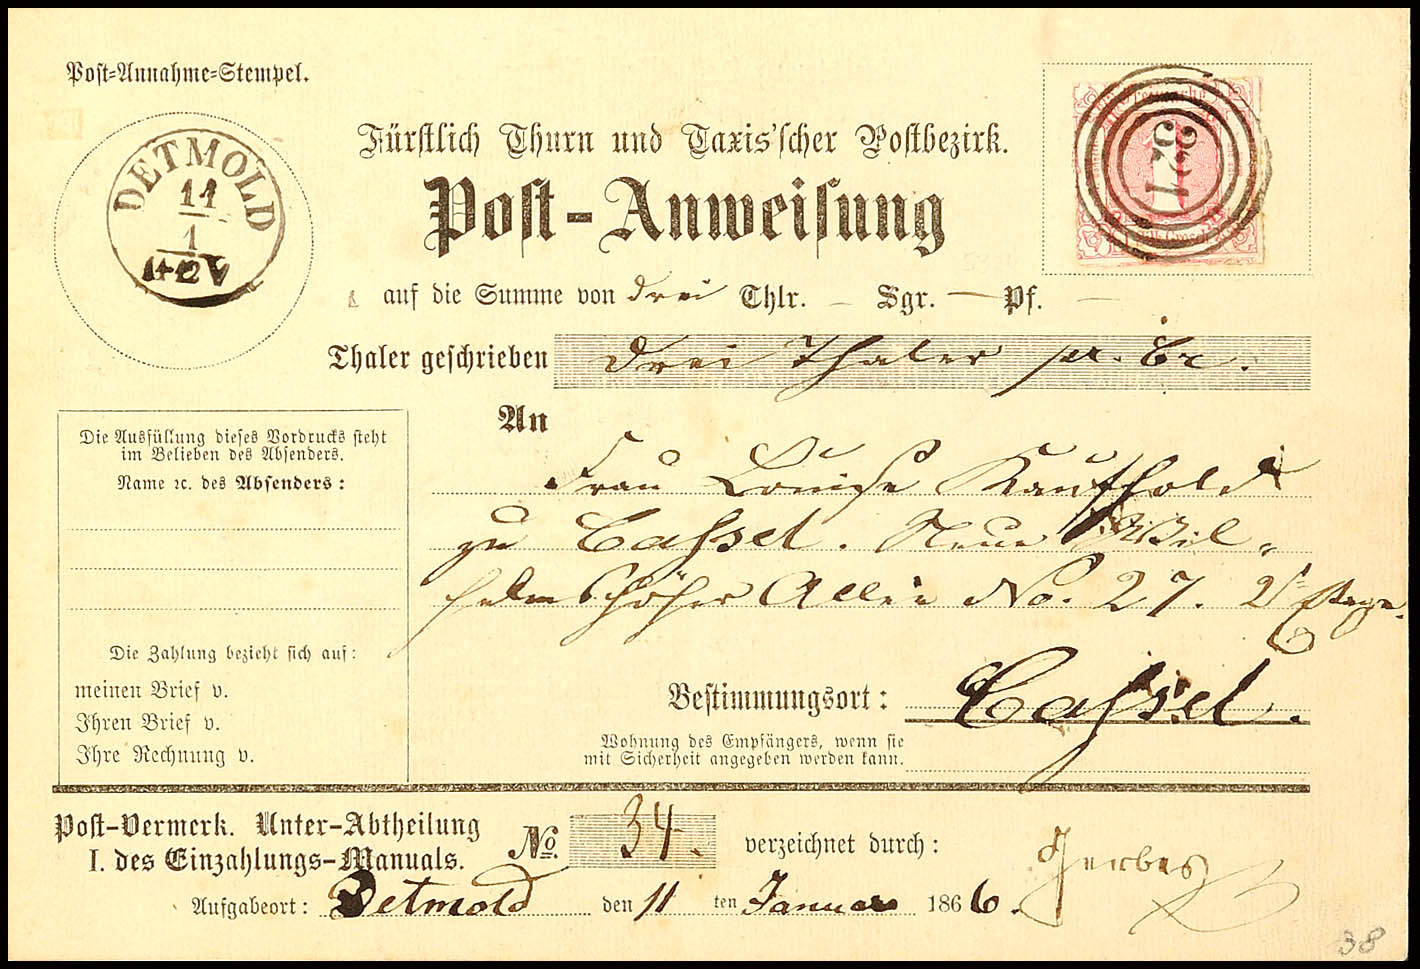 Post-Annahme-Stempel.
DETMOLD
11
1
11-12 V
321
Fürstlich Thurn und Taxis'scher Postbezirk.
Post-Anweisung
auf die Summe von drei Thlr. — Sgr. — Pf. —
Thaler geschrieben drei Thaler pr. Cr.
An
Frau Louise Kaufhold
zu Cassel. Neue Wil-
helmshöher Allee No. 27. 2te Etage.
Die Ausfüllung dieses Vordrucks steht
im Belieben des Absenders.
Name ꝛc. des Absenders:
Die Zahlung bezieht sich auf:
meinen Brief v.
Ihren Brief v.
Ihre Rechnung v.
Bestimmungsort: Cassel.
Wohnung des Empfängers, wenn sie
mit Sicherheit angegeben werden kann.
Post-Vermerk. Unter-Abtheilung
I. des Einzahlungs-Manuals. No. 34. verzeichnet durch:
Aufgabeort: Detmold den 11 ten Januar 1866.
38